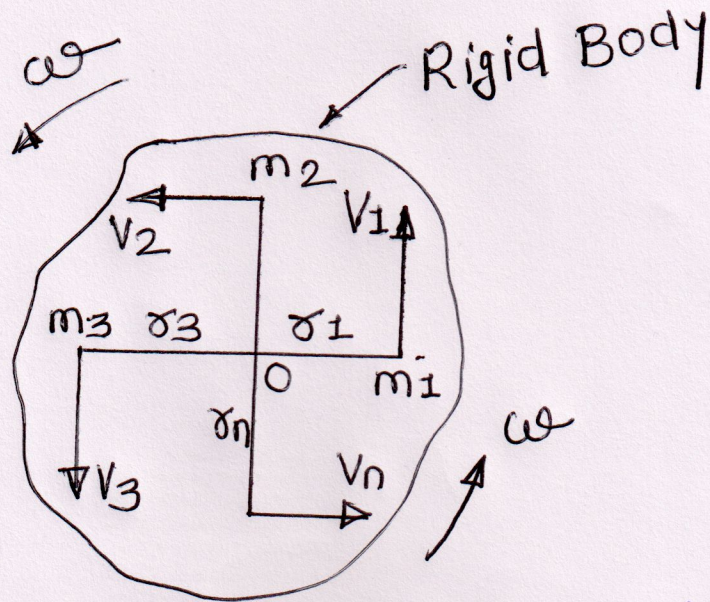 ω
Rigid Body
m2
V1
V2
m3
r3
r1
O
m1
rn
ω
Vn
V3